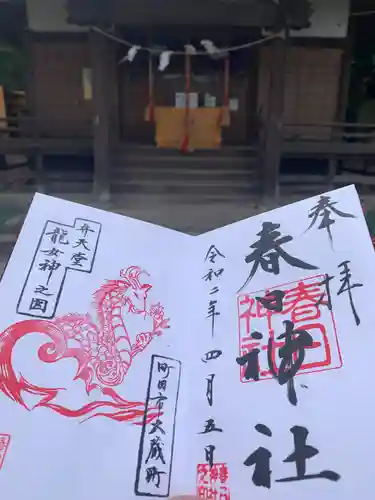 奉拝
春日神社
春日神社
令和二年四月五日
弁天堂
龍女神之図
町田市大蔵町